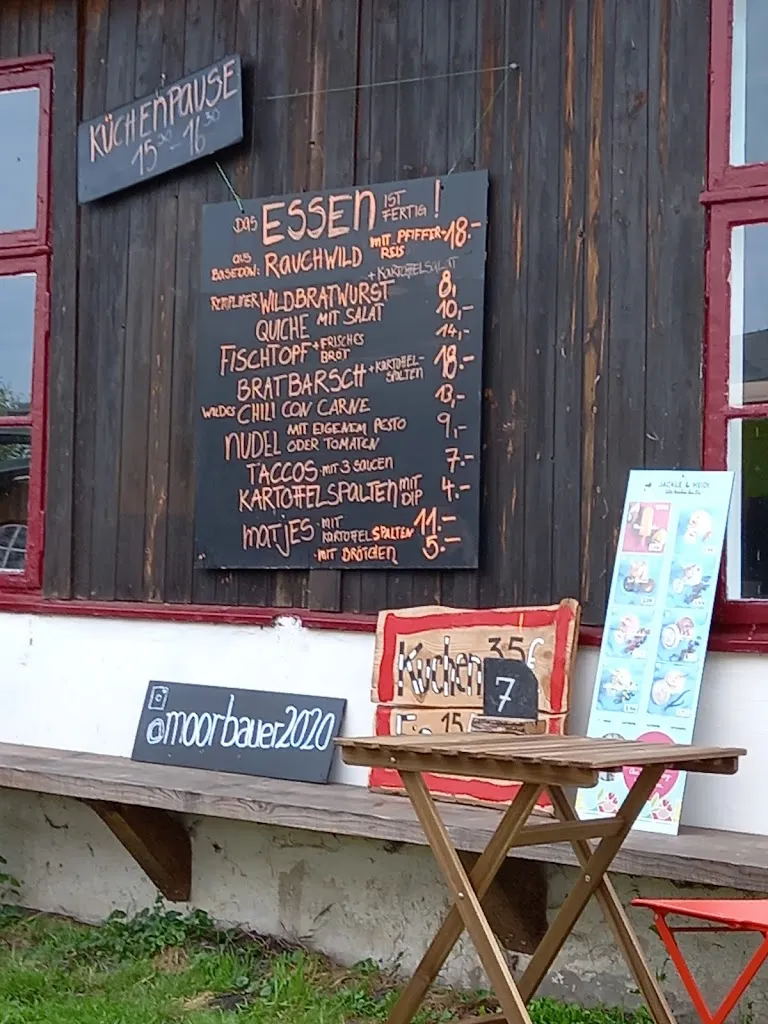 KÜCHENPAUSE
15³⁰ - 16³⁰
DAS ESSEN IST FERTIG!
AUS BASEDOW: RAUCHWILD MIT PFIFFER- REIS 18.-
+ KARTOFFELSALAT
REMPLINER WILDBRATWURST 8,
QUICHE MIT SALAT 10,-
FISCHTOPF + FRISCHES BROT 14,-
BRATBARSCH + KARTOFFEL- SPALTEN 18.-
WILDES CHILI CON CARNE 13,-
NUDEL MIT EIGENEM PESTO ODER TOMATEN 9,-
TACCOS MIT 3 SOUCEN 7.-
KARTOFFELSPALTEN MIT DIP 4.-
MATJES MIT KARTOFFELSPALTEN 11.-
MIT BRÖTCHEN 5.-
@moorbauer2020
Kuchen 3,5€
7
15
JACKLE & HEIDI